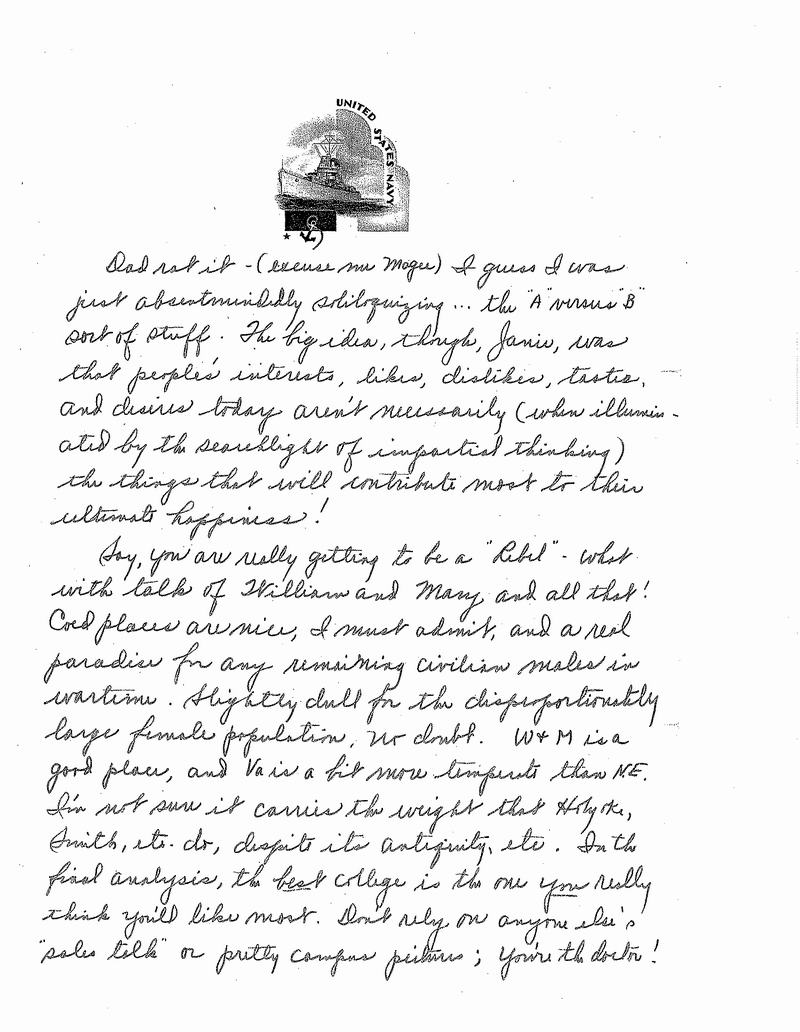 UNITED STATES NAVY
Dad rat it - (excuse me Magee) I guess I was
just absentmindedly soliloquizing ... the "A" versus "B"
sort of stuff. The big idea, though, Janie, was
that people's interests, likes, dislikes, tastes,
and desires today aren't necessarily (when illumin-
ated by the searchlight of impartial thinking)
the things that will contribute most to their
ultimate happiness!
Say, you are really getting to be a "Rebel" - what
with talk of William and Mary and all that!
Coed places are nice, I must admit, and a real
paradise for any remaining civilian males in
wartime. Slightly dull for the disproportionately
large female population, no doubt. W & M is a
good place, and Va is a bit more temperate than N.E.
I'm not sure it carries the weight that Holyoke,
Smith, etc. do, despite its antiquity, etc. In the
final analysis, the best college is the one you really
think you'll like most. Don't rely on anyone else's
"sales talk" or pretty campus pictures; you're the doctor!